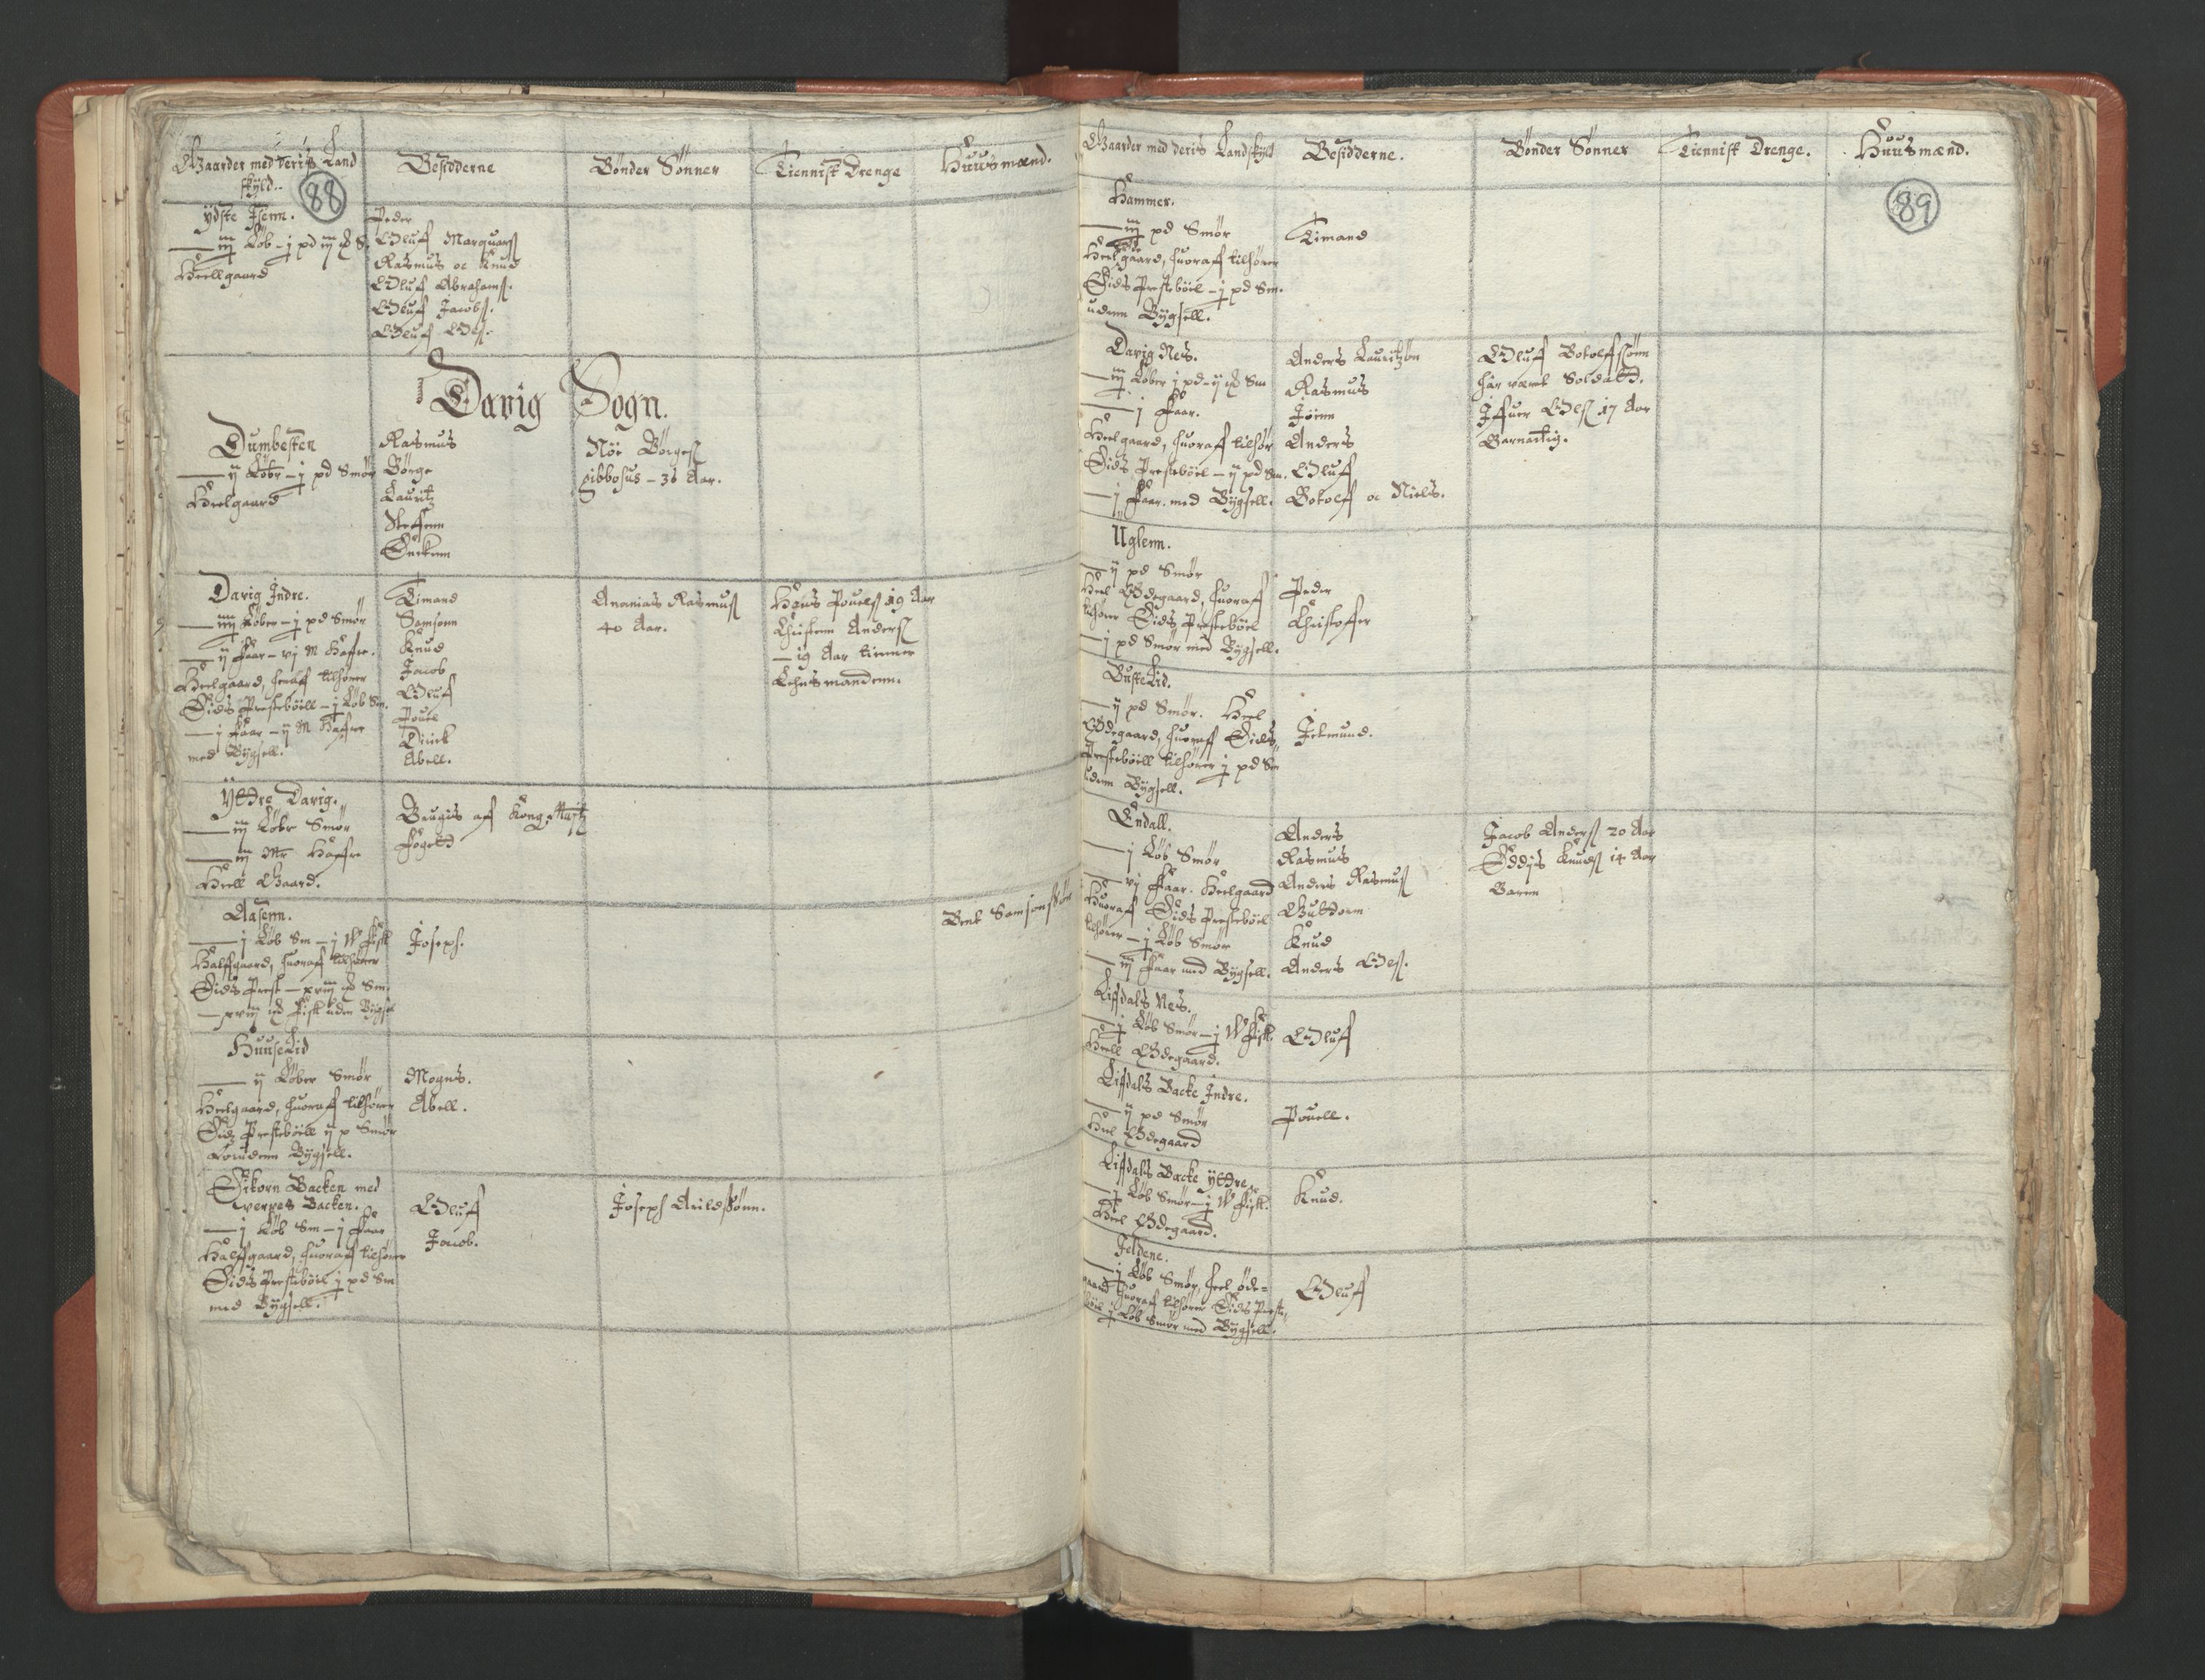 Gaarder med deris Land
skyld.
Besidderne
Bønder Sønner
Tiennist Drenge
Huusmænd.
88
ÿdste Isenn.
iij Løb - j pd iij ꝑd S.
Heellgaard
Peder
Oluf Marquarß
Rasmus oc Knud
Oluf Abrahamß.
Oluf Jacobß.
Oluf Olß.
Davig Sogn.
Dumbesten
ij Løbr - j pd Smør
Heelgaard
Rasmus
Børge
Lauritz
Steffenn
Nöe Børgeß
gibbosus - 36 Aar.
Davig Indre.
iiij Løber - j pd Smør
ij Faar - vj M Hafre.
Heelgaard, heraf tilhører
Eids Prestebøell - j Løb Sm.
j Faar - ij M Hafre
med Bÿgsell.
Timand
Samsonn
Knud
Jacob
Oluf
Pouel
Abell.
Ananias Rasmuß
40 Aar.
Hans Pouelß 19 Aar
Christenn Anderß
19 Aar tienner
Lehnsmandenn.
Ÿttre Davig.
iij Løbr Smør
iij Mr Haffre
Heell Gaard.
Brugis af Kong. Maÿtz
Fogett
Aasenn.
j Løb Sm - j W Fisk
Halffgaard, huoraf tilhører
Eids Prest - xviij ꝑd Sm.
xviij ꝑd Fisk uden Bÿgsel
Joseph.
Bent Samsonßøn
HuuseLid
ij Løber Smør
Heelgaard, huoraf tilhører
Eids Prestebøell ij p Smør
forudenn Bÿgsell.
Mogns.
Abell.
Eikorn Backen med
Tverres Backen.
j Løb Sm - j Faar
Halffgaard, huoraf tilhører
Eids Prestebøel j pd Sm
med Bÿgsell.
Oluf
Jacob.
Joseph Arildßønn.
Gaarder med deris Landskyld
Besidderne.
Bønder Sønner
Tiennist Drenge.
Huusmænd.
89
Hammer.
iij pd Smør
Heel gaard, huoraf tilhører
Eids Prestebøel - j pd Sm.
udenn Bÿgsell.
Timand
Davig Nes.
iij Løber j pd - ij ꝑd Sm
j Faar.
Heelgaard, huoraf tilhør
Eids Prestebøel - ij pd Sm.
j Faar. med Bÿgsell.
Anders Lauritzøn
Rasmus
Jönn
Anders
Oluf
Botolf oc Niels.
Oluf Botolfsønn
har været Soldatt.
Ifuer Olß 17 Aar
Barnactig.
Uglenn.
ij pd Smør
Heel Ødegaard, huoraf
tilhører Eids Prestebøel
j pd Smør med Bÿgsell.
Peder
Christoffer
BusteLid.
ij pd Smør. Heel
Ødegaard, huoraf Eids
Prestebøell tilhører j pd Sm
udenn Bÿgsell.
Jetmund.
Endall.
j Løb Smør
vj Faar. Heelgaard
Huoraf Eids Prestebøel
tilhører - j Løb Smør
iij Faar med Bÿgsell.
Anders
Rasmus
Anders Rasmuß
Guttorm
Knud
Anders Olß.
Jacob Anderß 20 Aar
Oddÿs Knudß 14 Aar
Barnn
Lifdals Nes.
j Løb Smør - j W Fisk.
Heell Ødegaard.
Oluf
Lifdals Backe Indre.
ij pd Smør
Heel Ødegaard
Pouell.
Lifdals Backe ÿttre
j Løb Smør - j W Fisk.
Heel Ødegaard.
Knud.
Jeldene.
j Løb Smør, heel øde=
gaard huoraf tilhører Eids Preste,
bøel j Løb Smør med Bÿgsell.
Oluf